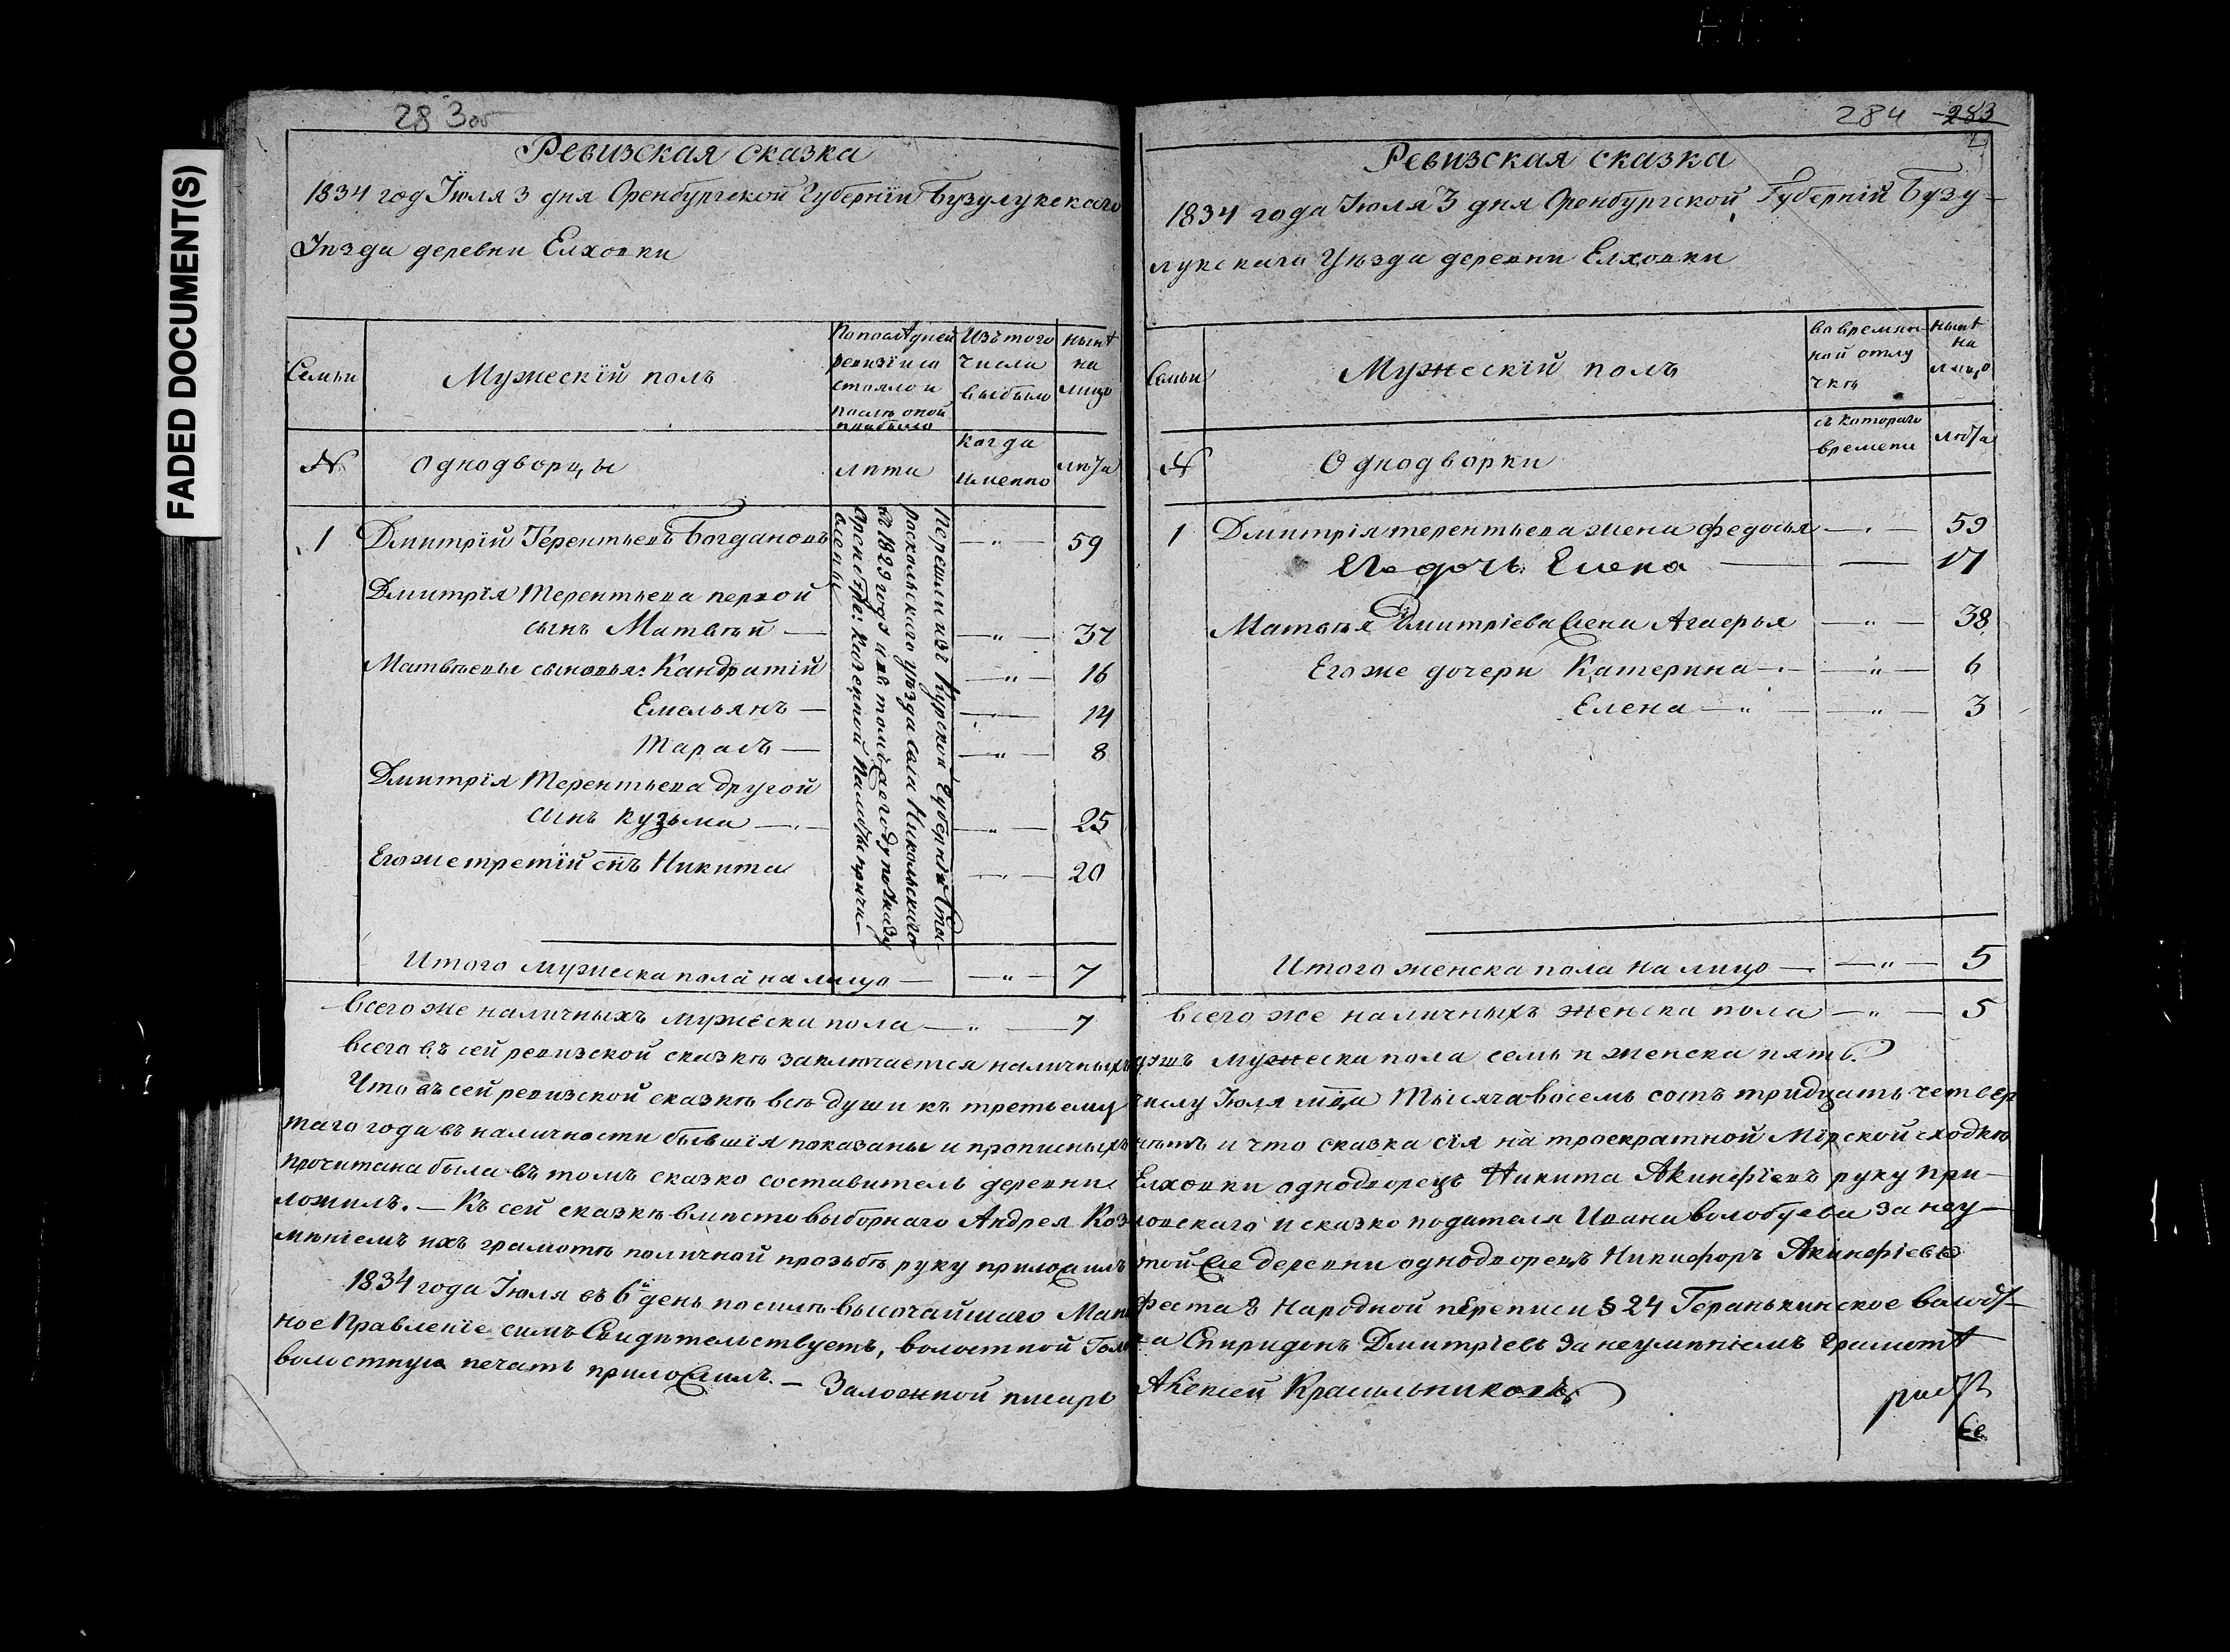 FADED DOCUMENT(S)
283об
Ревизская сказка
1834 год Іюля 3 дня Оренбургской Губерніи Бузулукскаго
Уѣзда деревни Елховки
Семьи
Мужескій полъ
По последней ревизіи состояло и послѣ оной прибыло
Изъ того числа выбыло
нынѣ на лицо
№
Однодворцы
лѣта
когда именно
лѣта
1 Дмитрій Терентьевъ Богдановъ — „ — 59
Дмитрія Терентьева первой
сынъ Матвѣй — — „ — 37
Матвѣевы сыновья: Кандратій — „ — 16
Емельянъ — — „ — 14
Тарасъ — — „ — 8
Дмитрія Терентьева другой
сынъ Кузьма — — „ — 25
Его же третій снъ Никита — „ — 20
Перешли изъ Курской Губерніи Ста-
роскольскаго уѣзда села Никольскаго
въ 1829 года и въ томъ же году по указу
Оренбург: казенной палаты причи-
слены
Итого мужеска пола на лицо — — „ — 7
Всего же наличныхъ мужеска пола — „ — 7
284 283
Ревизская сказка
1834 года Іюля 3 дня Оренбургской Губерній Бузу-
лукскаго Уѣзда деревни Елховки
Семьи
Мужескій полъ
во времян-
ной отлу
чкѣ
нынѣ
на
лицо
№
Однодворки
съ котораго
времени
лѣта
1 Дмитрія терентьева жена Федосья — „ — 59
Его дочь Елена — — 17
Матвѣя Дмитріева жена Агаѳья — „ — 38
Его же дочери Катерина — „ — 6
Елена — „ — — „ — 3
Итого женска пола на лицо — — „ — 5
Всего же наличныхъ женска пола — „ — 5
Всего въ сей ревизской сказкѣ заключается наличныхъ душъ мужеска пола семь и женска пять.
Что въ сей ревизской сказкѣ всѣ души къ третьему числу Іюля мца Тысяча восемь сотъ тридцать четвер
таго года въ наличности бывшія показаны и прописныхъ нѣтъ и что сказка сія на троекратной Мірской сходкѣ
прочитана была въ томъ сказко составитель деревни Елховки однодворецъ Никита Акинфіевъ руку при-
ложилъ. — Къ сей сказкѣ вмѣсто выборнаго Андрея Козловскаго и сказко подателя Ивана Волобуева за неу-
мѣніемъ ихъ грамотѣ по личной прозьбѣ руку приложилъ той же деревни однодворецъ Никифоръ Акинфіевъ
1834 года Іюля въ 6й день по силѣ высочайшаго Манифеста о народной переписи § 24 Геранькинское волост-
ное Правленіе симъ Свидѣтельствуетъ, волостной Голова Спиридонъ Дмитріевъ за неумѣніемъ грамотѣ
волостную печать приложилъ. — Заложной писарь Алексей Красильниковъ